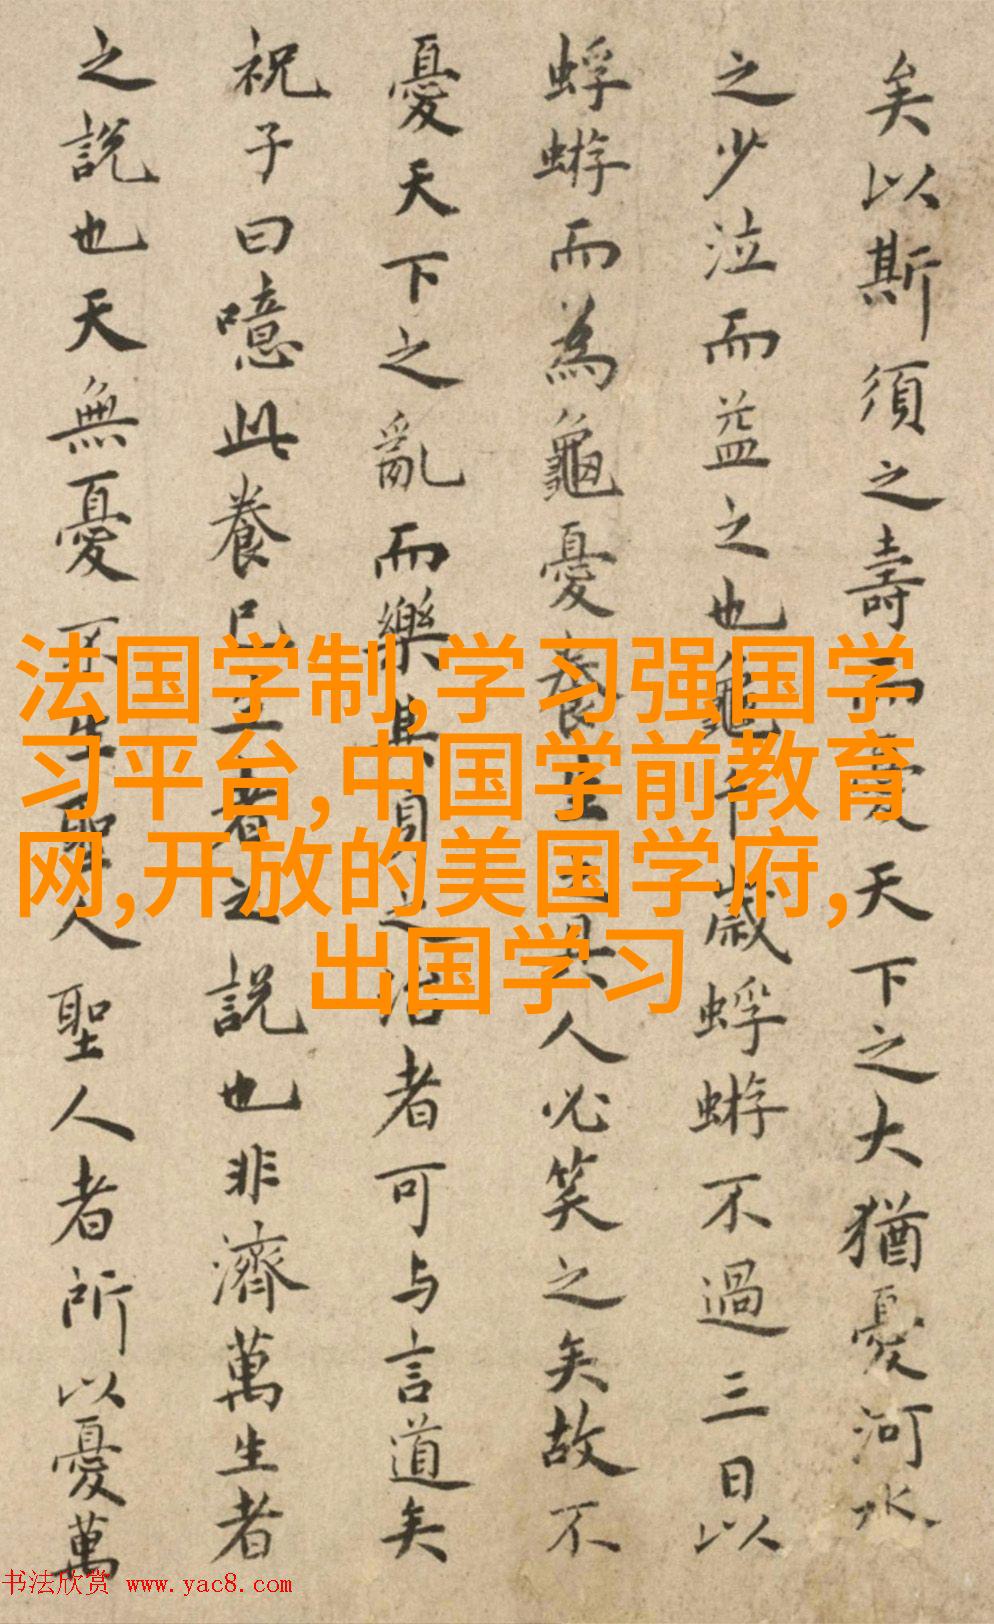 矣以斯須之壽而憂天下之大猶憂河水
之少泣而益之也龜千歲蜉蝣不過三日以
蜉蝣而為龜憂養生之具人必笑之矣故不
憂天下之亂而樂其身之治者可与言道矣
祝子曰噫此養己生者之說也非濟萬生者
之說也天無憂不生聖人聖人者所以憂萬
法国学制,学习强国学
习平台,中国学前教育
网,开放的美国学府,
出国学习
书法欣赏 www.yac8.com